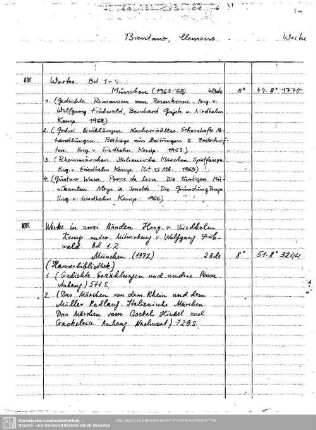 Brentano, Clemens. Werke
Werke Bd 1-4
München (1963-68) 4 Bde 8° 
1. (Gedichte Romanzen vom Rosenkranz. Hrsg. v.
Wolfgang Frühwald, Bernhard Gajek und Friedhelm
Kemp. 1968)
2. (Godwi Erzählungen
Hrsg. v. Friedhelm Kemp. 1963)
3. (Rheinmärchen. Italienische Märchen. Spätfassungen
Hrsg. v. Friedhelm Kemp. 1965)
4. (Gustav Wasa. Ponce de Leon. Die lustigen Mu-
sikanten. Aloys u. Imelde. Die Gründung Prags
Hrsg. v. Friedhelm Kemp. 1966)
Werke in zwei Bänden Hrsg. v. Friedhelm
Kemp unter Mitwirkung v. Wolfgang Früh-
wald Bd 1.2
München (1972) 2 Bde 8° 51. 8° 3244
(Hanserbibliothek)
1. (Gedichte. Erzählungen und andere Prosa
Anhang) 571 S.
2. (Das Märchen von dem Rhein und dem
Müller Radlauf. Italienische Märchen
Das Märchen von Gockel Hinkel und
Gackeleia Anhang Nachwort) 729 S.
Sächsische Landesbibliothek -
Staats- und Universitätsbibliothek Dresden